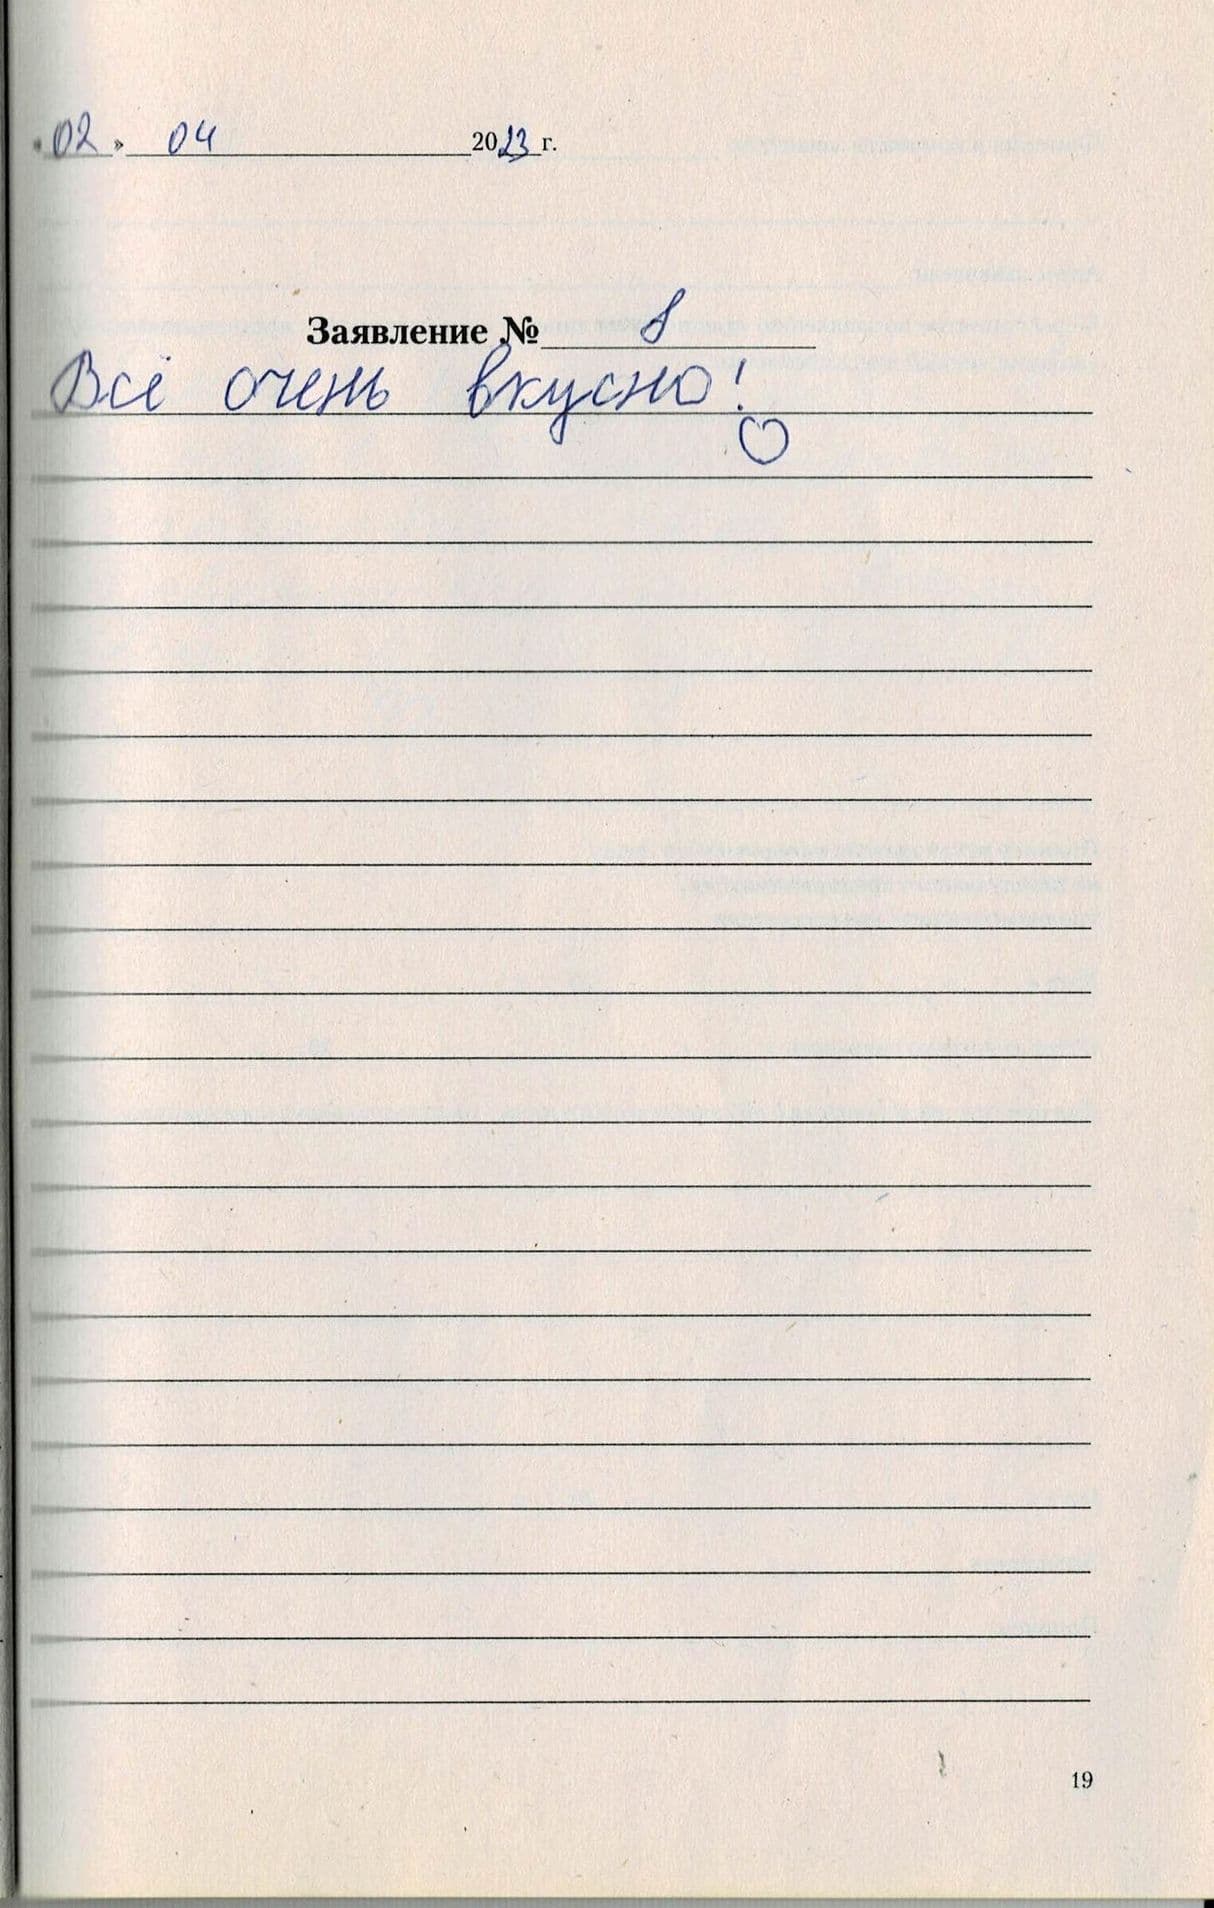 «02» 04 2023 г.
Заявление № 8
Всё очень вкусно!
19